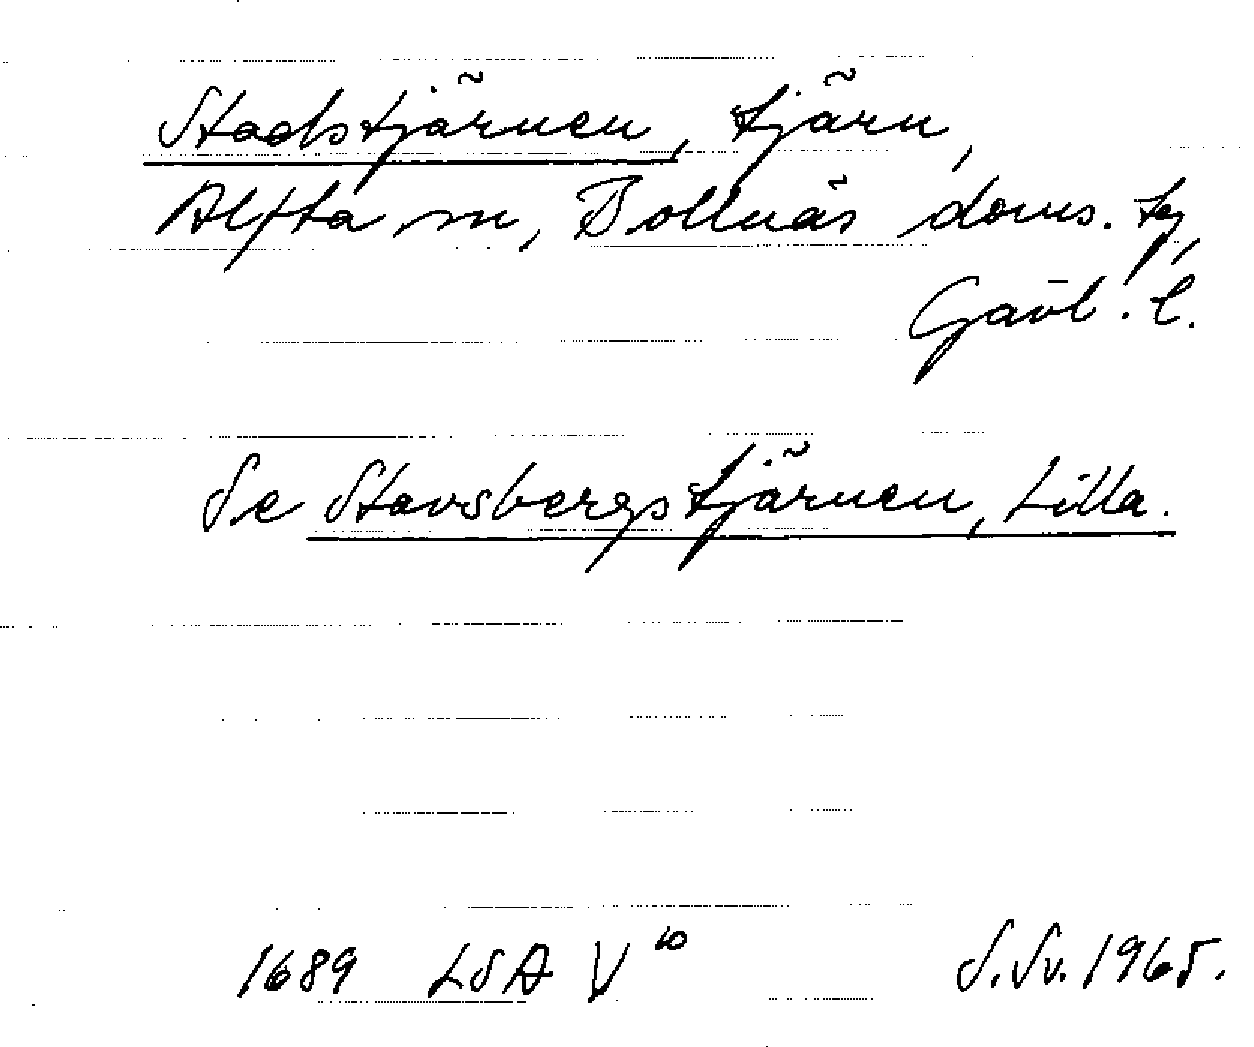 Stadstjärnen, tjärn,
Alfta sn, Bollnäs doms. tg,
Gävl. l.
Se Stavsbergstjärnen, Lilla.
1689 LSA V¹⁰ S. Sv. 1965.